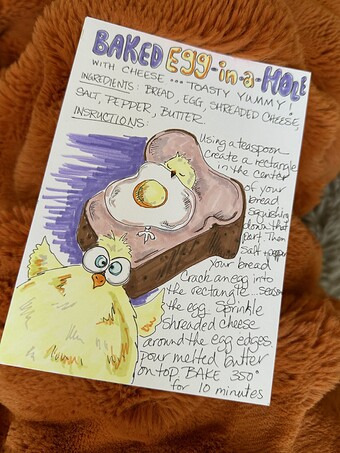 BAKED EGG-in-a-HOLE
WITH CHEESE ... TOASTY YUMMY!
INGREDIENTS: BREAD, EGG, SHREADED CHEESE,
SALT, PEPPER, BUTTER.
INSRUCTIONS:
Using a teaspoon
create a rectangle
in the center
of your
bread
squishing
down that
part. Then
Salt + pepper
your bread
Crack an egg into
the rectangle... season
the egg. Sprinkle
shreaded cheese
around the egg edges
pour melted butter
on top BAKE 350°
for 10 minutes